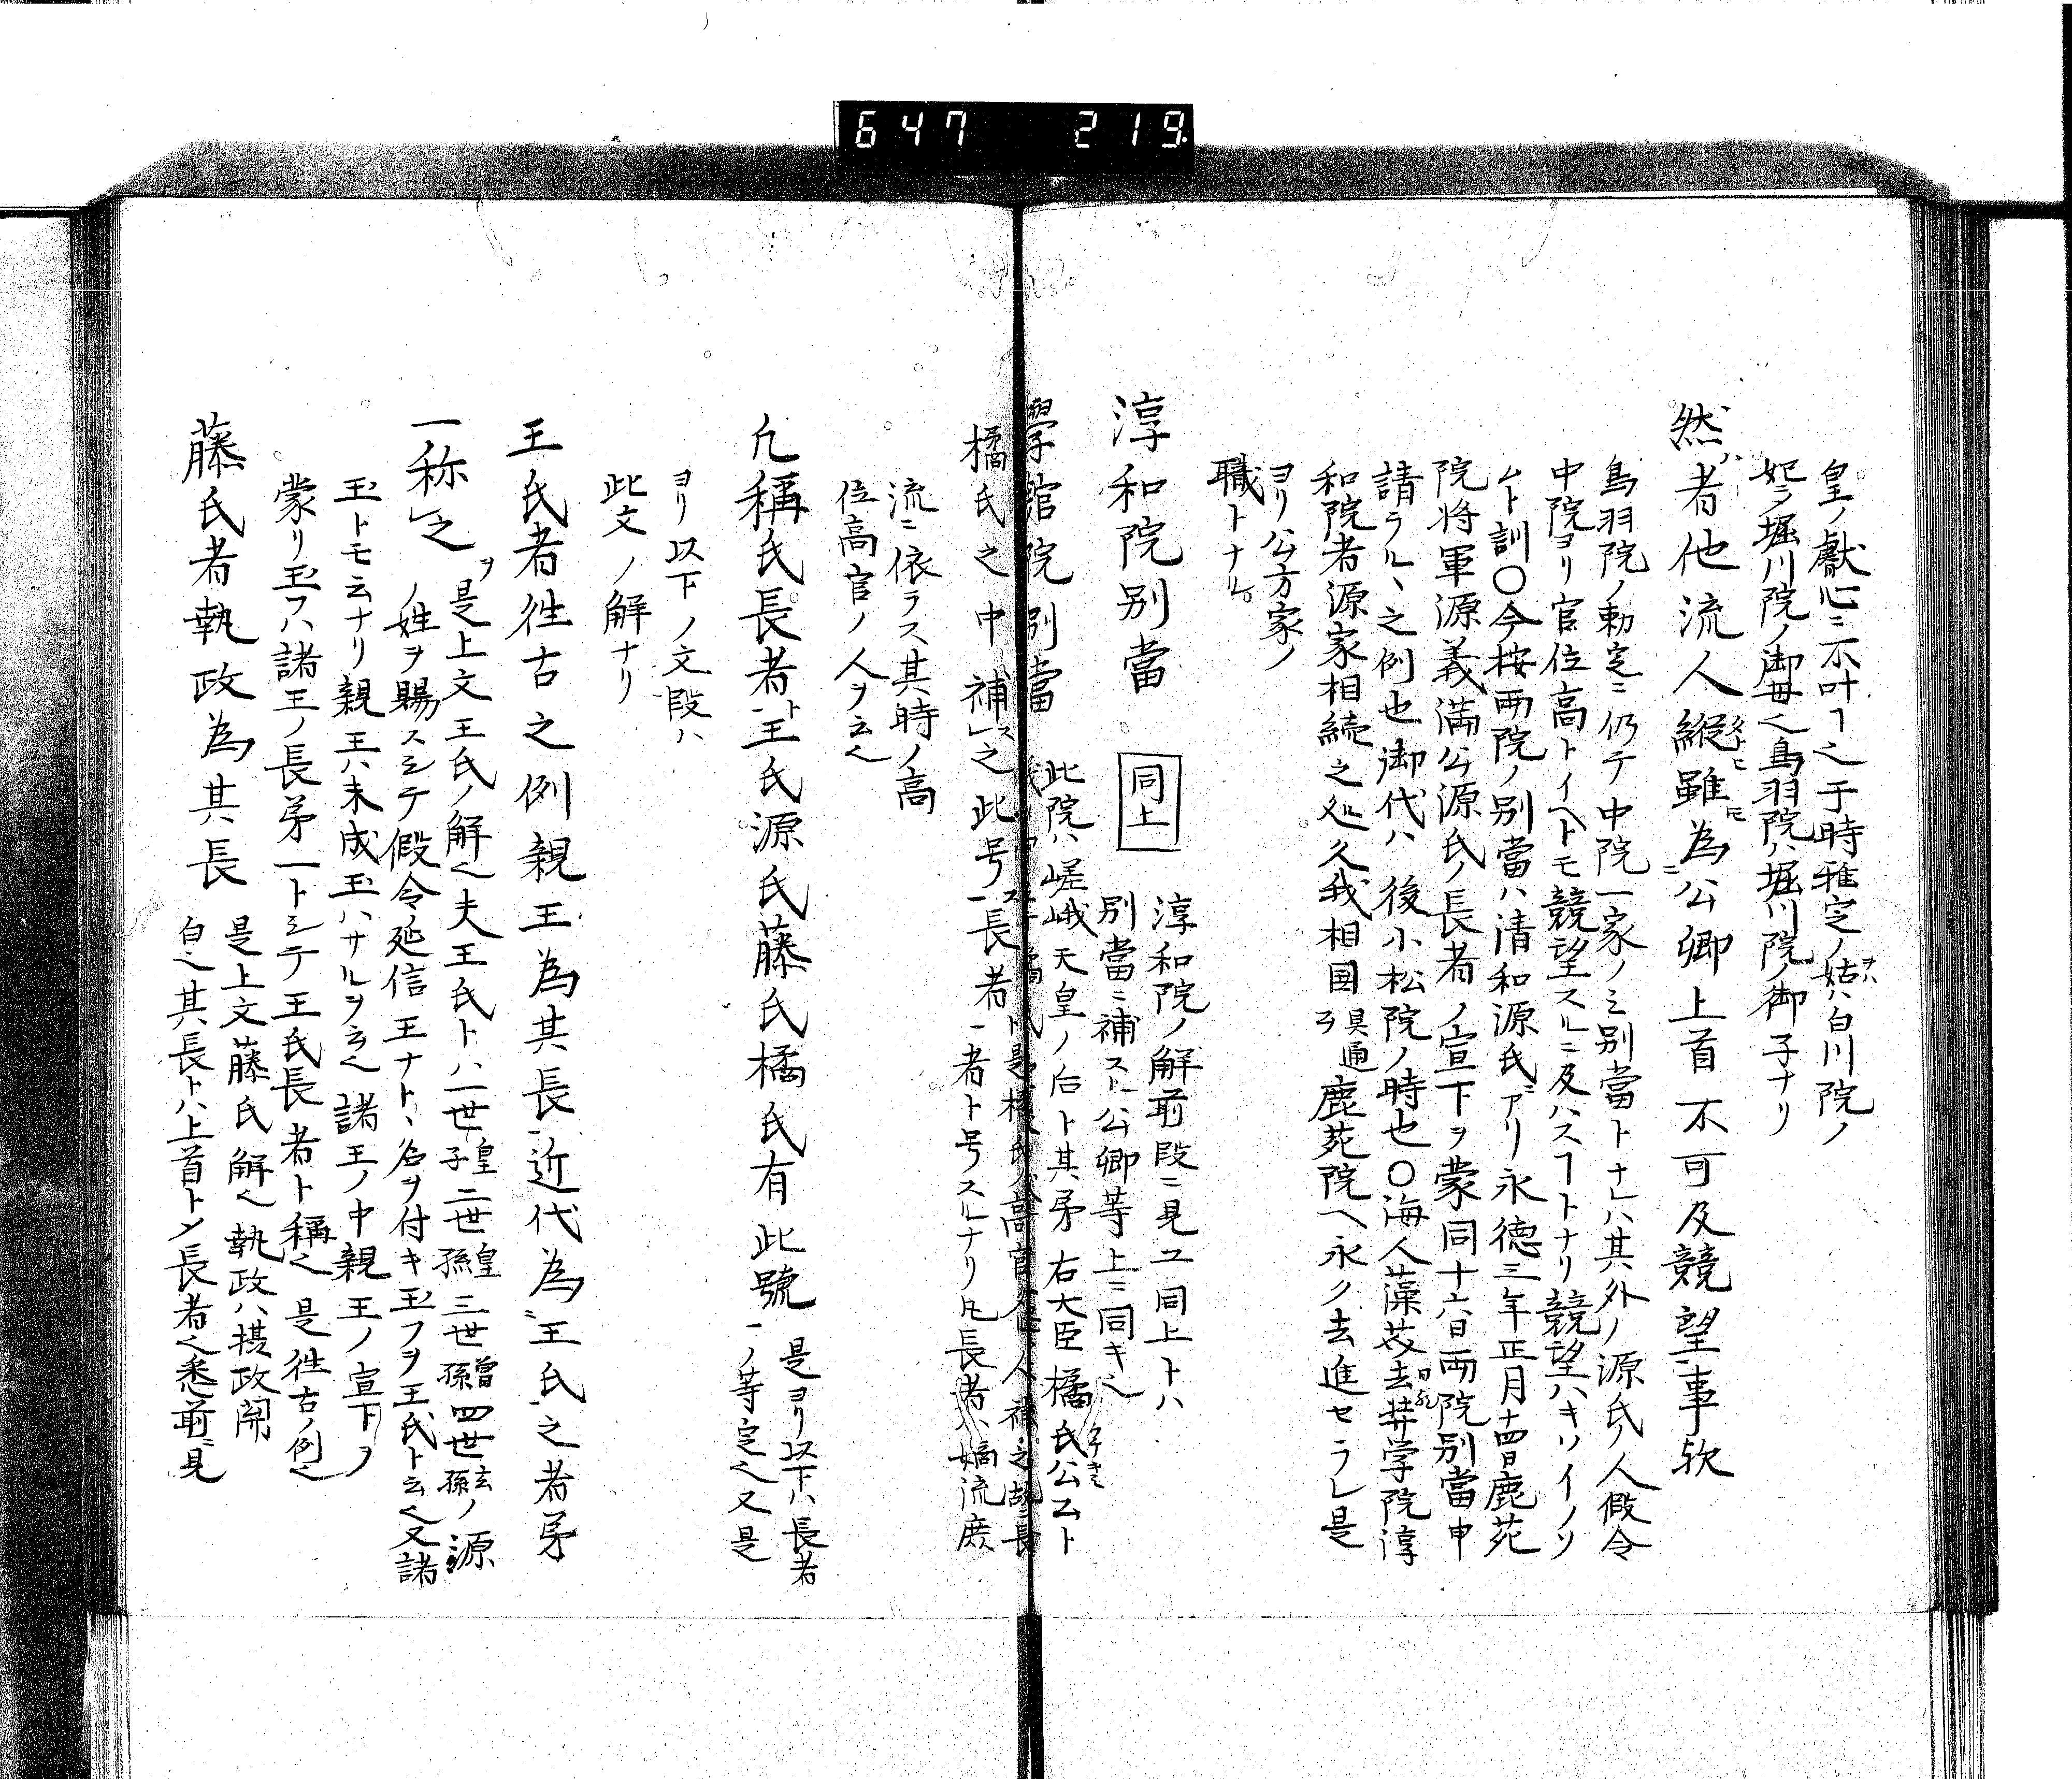 647 219
皇ノ獻心ニ不叶ヿ之于時雅定ノ姑ハ白川院ノ
妃ヲ堀川院ノ御母也鳥羽院ハ堀川院ノ御子ナリ
然者他流人縦雖為公卿上首不可及競望事欤
鳥羽院ノ勅定ニ仍テ中院一家ノミ別當トナレハ其外ノ源氏ノ人假令
中院ヨリ官位高トイヘトモ競望スルニ及ハスヿトナリ競望ハキソイノソ
ムト訓〇今按両院ノ別當ハ清和源氏ニアリ永徳三年正月十四日鹿苑
院将軍源義満公源氏ノ長者ノ宣下ヲ蒙同十六日両院別當申
請ラル丶之例也御代ハ後小松院ノ時也〇海人藻芥去奨学院淳
和院者源家相続之処久我相国具通ヨリ鹿苑院ヘ永ク去進セラレ是
ヨリ公方家ノ
職トナル
淳和院別當 同上 淳和院ノ解前段ニ見ユ同上トハ
別當ニ補スト公卿等上ニ同キ之
學館院別當 此院ハ嵯峨天皇ノ后ト其弟右大臣橘氏公公ト
橘氏之中補之此号長者 是橘氏ノ高官ノ人補之故ニ長
者ト号スルナリ凡長者ハ嫡流庶
流ニ依ラス其時ノ高
位高官ノ人ヲ云也
凡稱氏長者王氏源氏藤氏橘氏有此號 是ヨリ以下ハ長者
ノ等定也又是
ヨリ以下ノ文段ハ
此文ノ解ナリ
王氏者往古之例親王為其長近代為王氏之者弟
一称之 是上文王氏ノ解也夫王氏トハ一世皇子二世皇孫三世曾孫四世玄孫ノ源
ノ姓ヲ賜スシテ假令延信王ナト丶名ヲ付キ玉フヲ王氏ト云也又諸
王トモ云ナリ親王ハ未成玉ハサルヲ云也諸王ノ中親王ノ宣下ヲ
蒙リ玉フハ諸王ノ長弟一トシテ王氏長者ト稱也是往古ノ例也
藤氏者執政為其長 是上文藤氏解也執政ハ摂政関
白也其長トハ上首トノ長者也悉前ニ見